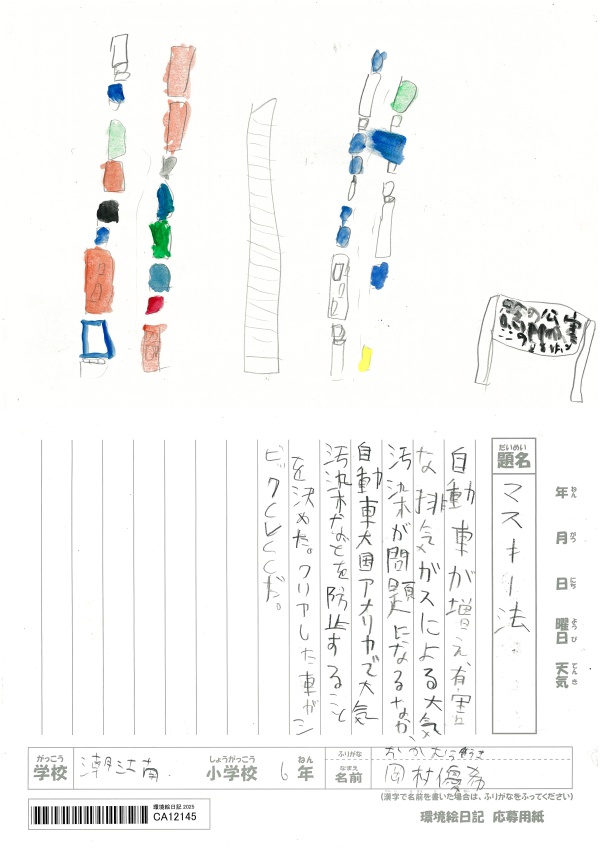 だいめい
題名
マスキー法
年 ねん
月 がつ
日 にち
曜日 ようび
天気 てんき
自動車が増え、有害
な排気ガスによる大気
汚染が問題になるなか、
自動車大国アメリカで大気
汚染などを防止すること
を決めた。クリアした車がシ
ビックCVCCだ。
がっこう
学校
潮江南
しょうがっこう
小学校
6
ねん
年
ふりがな
なまえ
名前
岡村優希
(漢字で名前を書いた場合は、ふりがなをふってください)
環境絵日記 2025
CA12145
環境絵日記 応募用紙